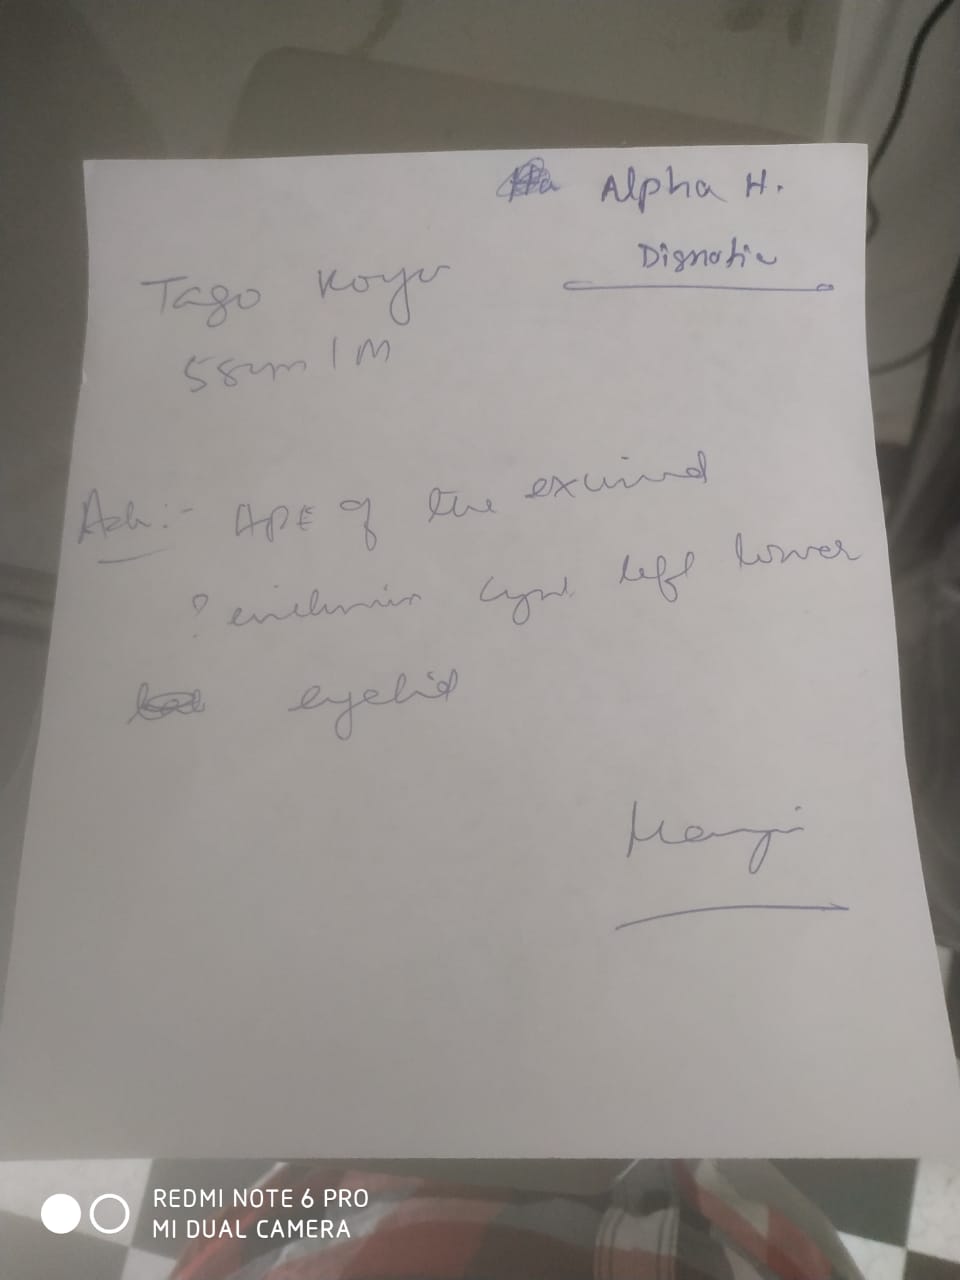 Alpha H.
Dignostic
Tago Koyu
58 / M
Adv:- HPE of the excised
? cyst left lower
eyelid
REDMI NOTE 6 PRO
MI DUAL CAMERA